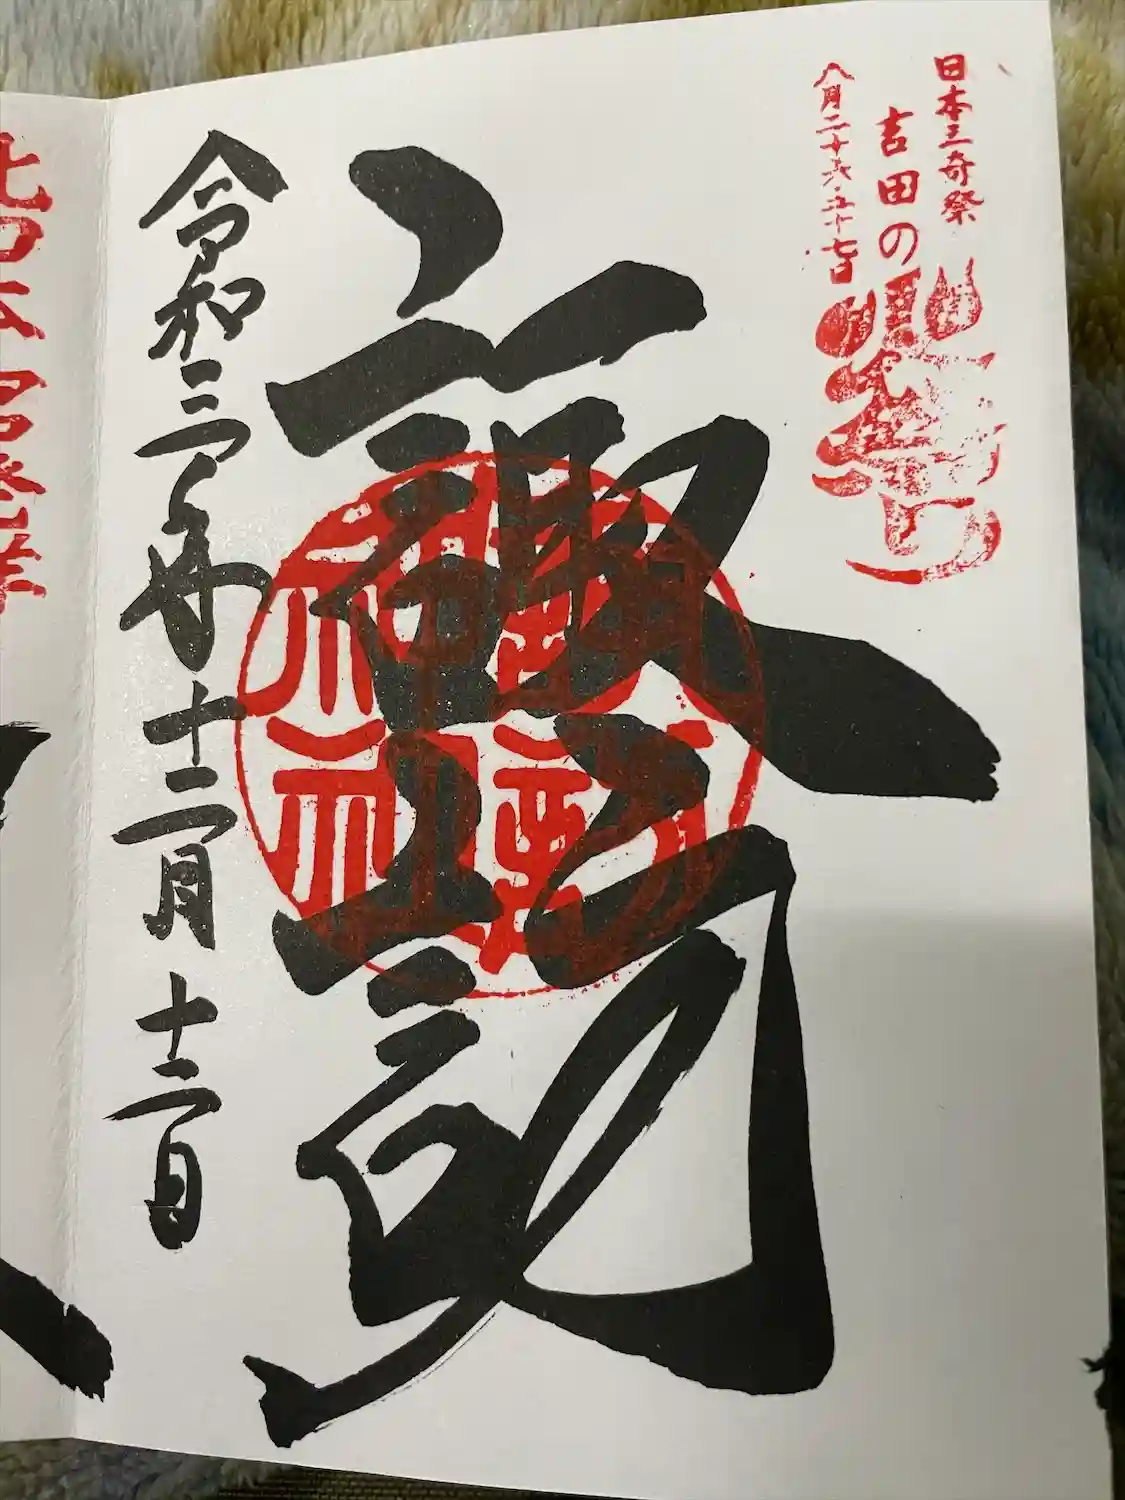 日本三奇祭
吉田の火祭り
八月二十六・二十七日
諏訪
諏訪
神社
令和三年十二月十二日
北口本宮